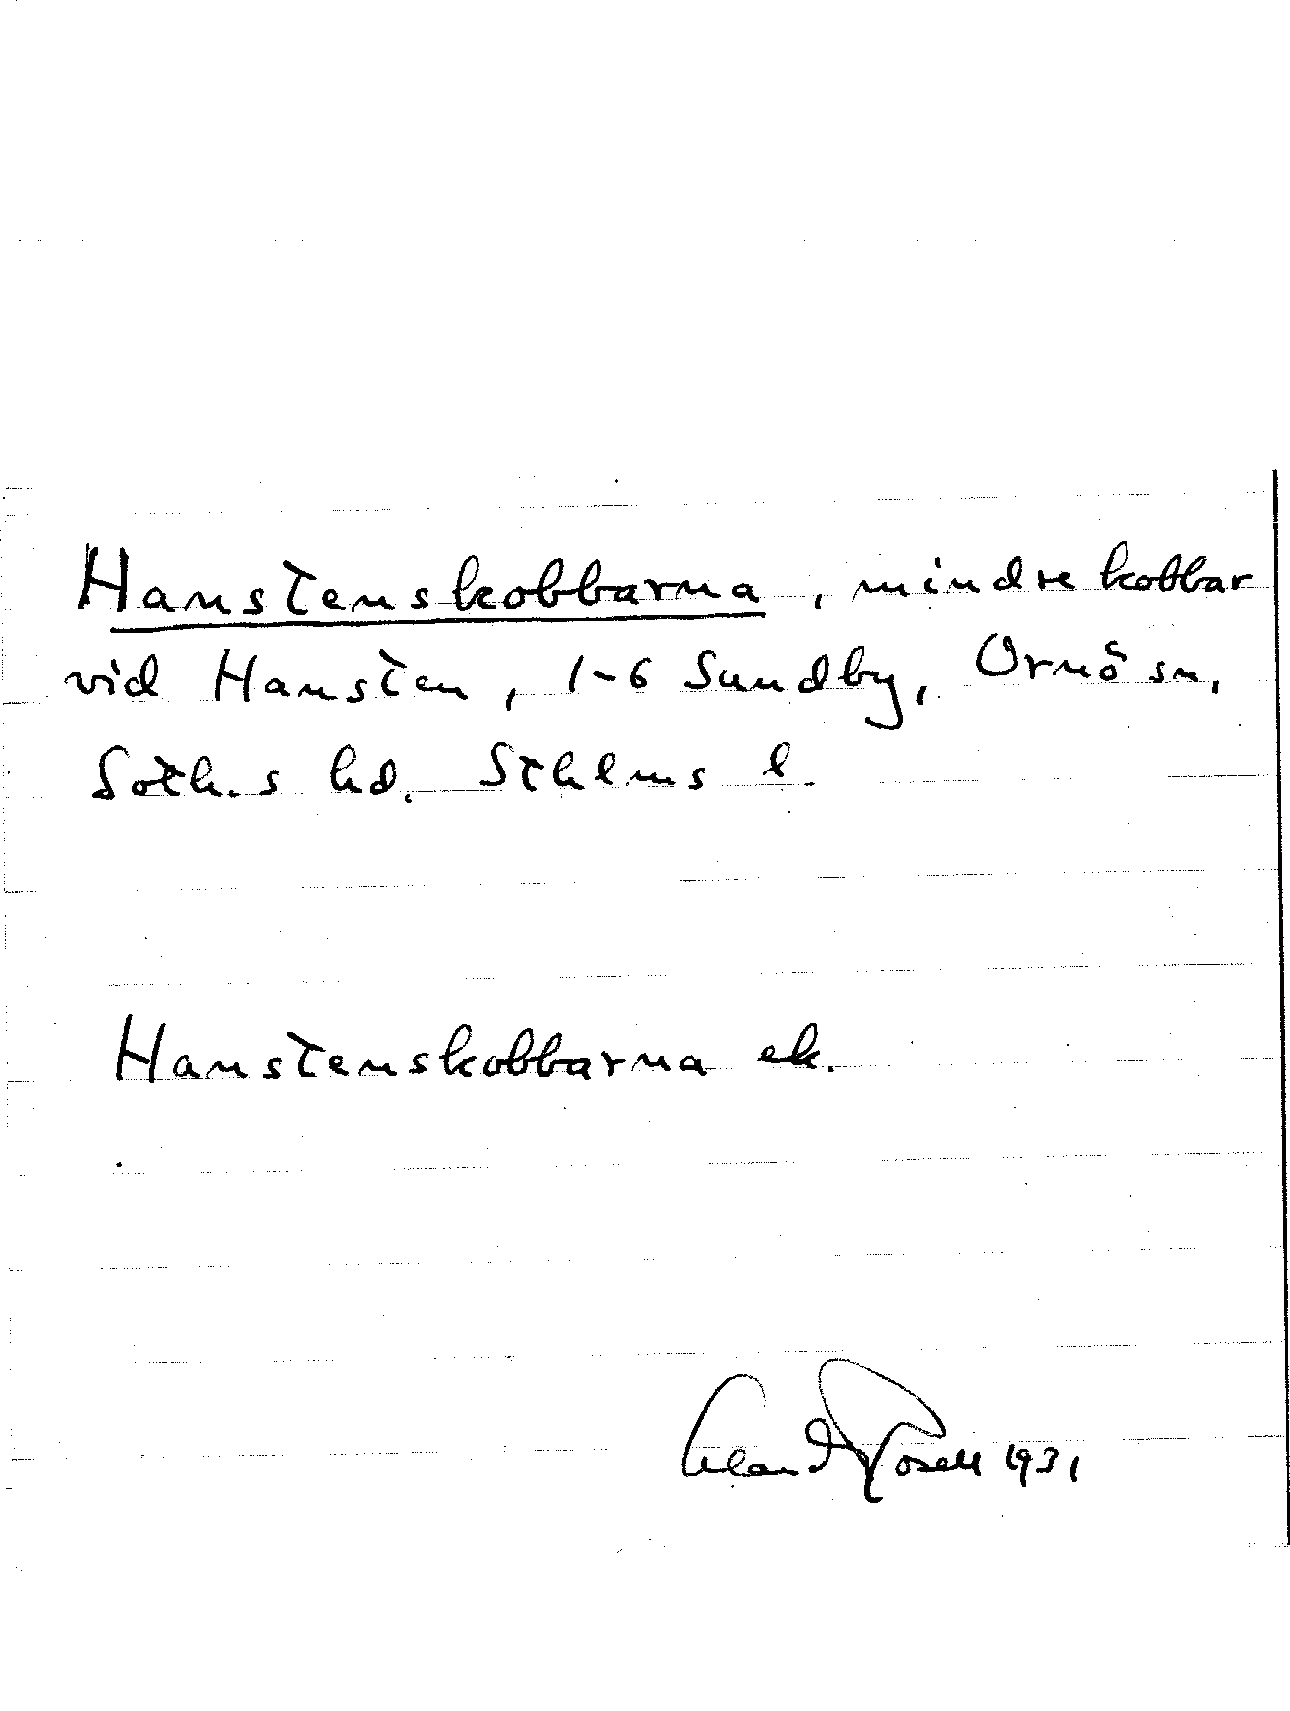 Hanstenskobbarna, mindre kobbar
vid Hansten, 1-6 Sundby, Ornö sn,
Soth.s hd. Sthlms l.
Hanstenskobbarna ek.
Rosell 1931